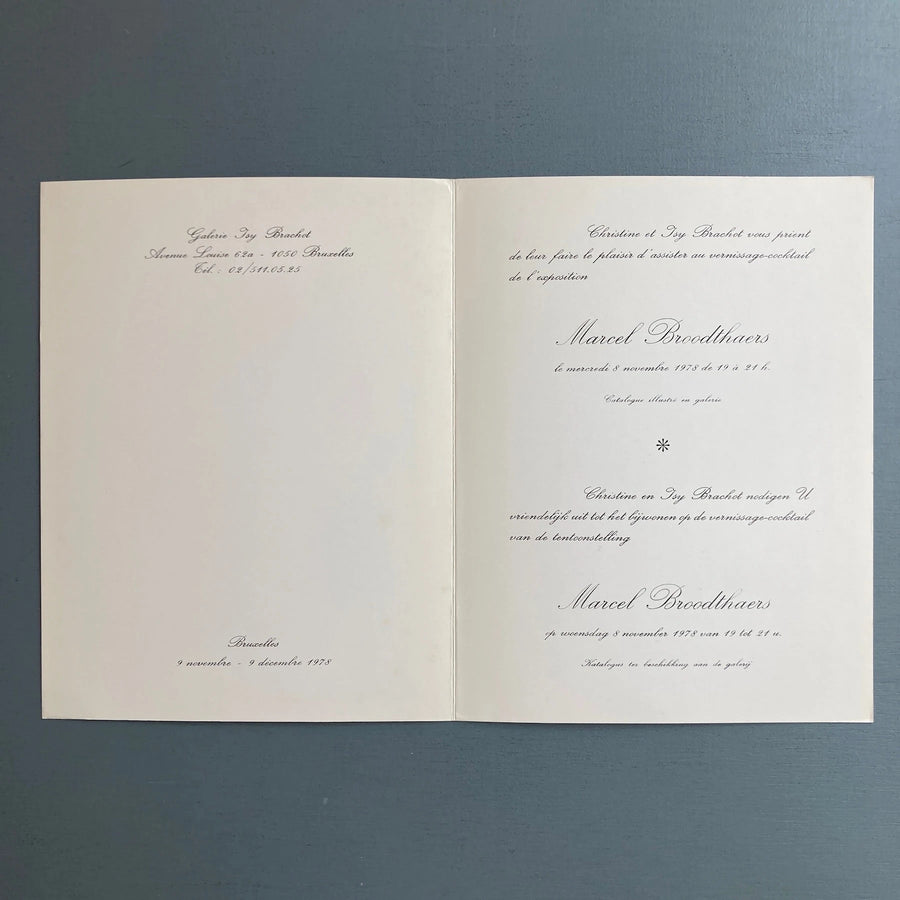 Galerie Isy Brachot
Avenue Louise 62a - 1050 Bruxelles
Tél. : 02/511.05.25
Bruxelles
9 novembre - 9 décembre 1978
Christine et Isy Brachot vous prient
de leur faire le plaisir d'assister au vernissage-cocktail
de l'exposition
Marcel Broodthaers
le mercredi 8 novembre 1978 de 19 à 21 h.
Catalogue illustré en galerie
Christine en Isy Brachot nodigen U
vriendelijk uit tot het bijwonen op de vernissage-cocktail
van de tentoonstelling
Marcel Broodthaers
op woensdag 8 november 1978 van 19 tot 21 u.
Katalogus ter beschikking aan de galerij